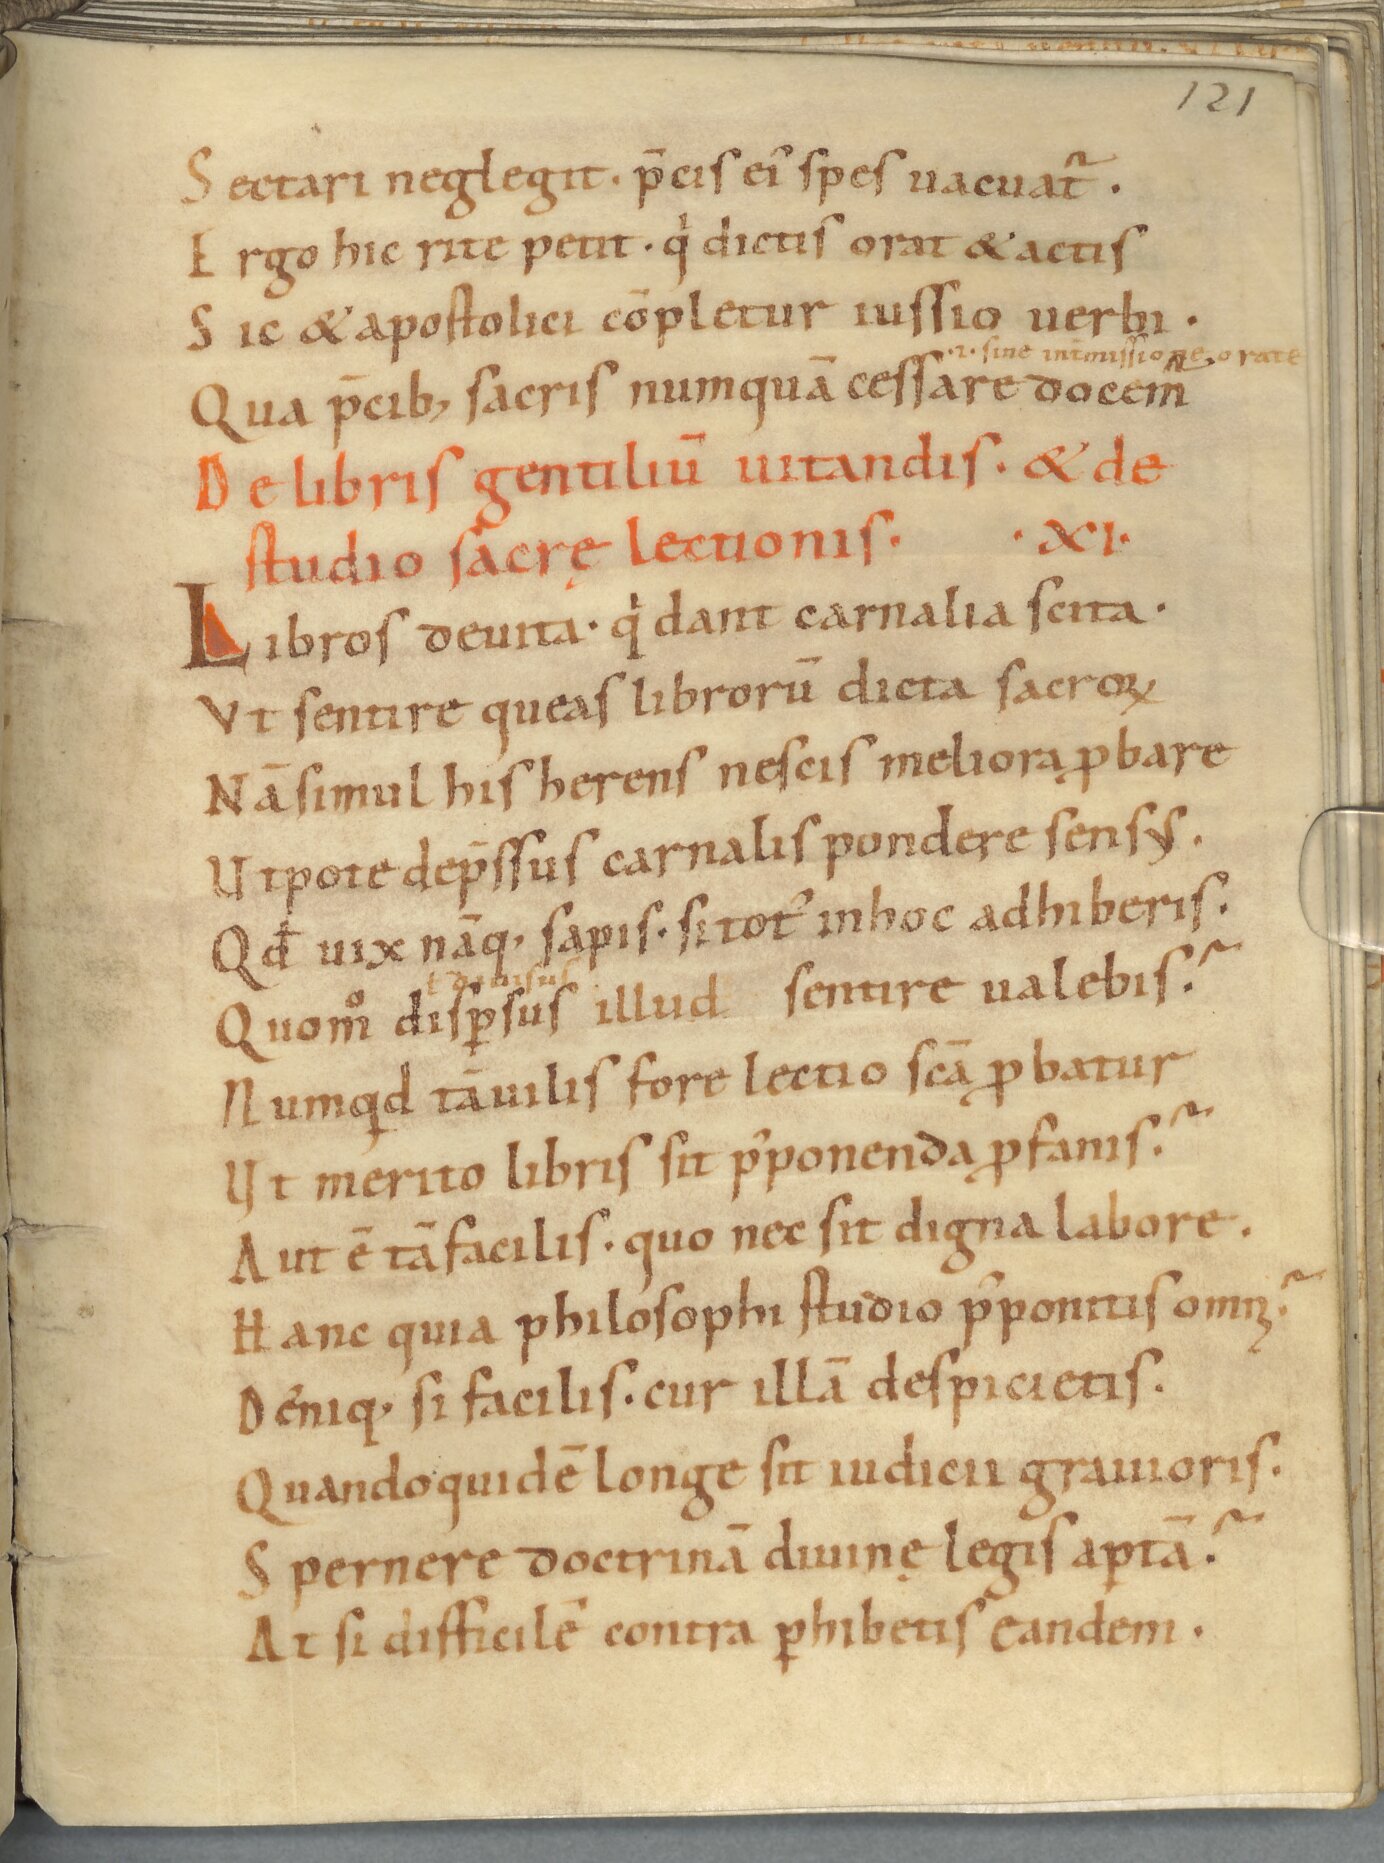 121
Sectari neglegit. p̄cis ei᷒ spes uacuat᷑.
Ergo hic rite petit. qͥ dictis orat & actis
Sic & apostolici cōpletur iussio uerbi.
.i. sine int̄missione orate
Qua p̄cib; sacris numquā cessare docem᷑
De libris gentiliū uitandis. & de
studio sacrę lectionis. .XI.
Libros deuita. qͥ dant carnalia scita.
Vt sentire queas librorū dicta sacroꝝ
Nā simul his herens nescis meliora ꝓbare
Utpote dep̄ssus carnalis pondere sensus.
Qđ uix nāq; sapis. si tot᷒ in hoc adhiberis.
ł diuisus
Quom̊ disꝑsus illud sentire ualebis?
Numqͥd tā uilis fore lectio scā ꝓbatur
Ut merito libris sit p̄ponenda ꝓfanis?
Aut ē tā facilis. quo nec sit digna labore.
Hanc quia philosophi studio p̄ponitis omnı̨?
Deniq; si facilis. cur illā despicietis.
Quandoquidē longe sit iudicii grauioris.
Spernere doctrinā diuinę legis aptā?
At si difficilē contra ꝑhibetis eandem.